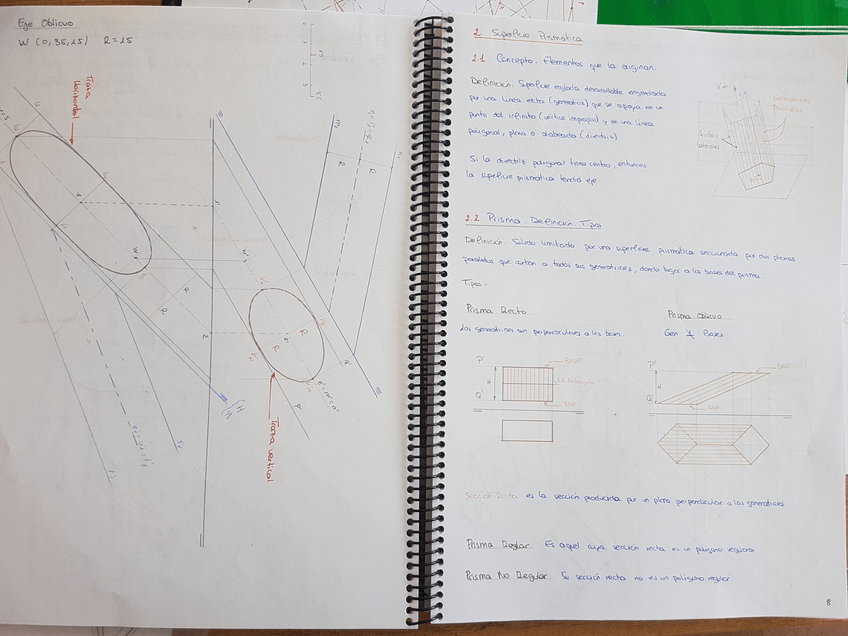 Eje Oblicuo
W (0,35,15) R=15
Traza Horizontal
Traza vertical
2 Superficie Prismática
2.1 Concepto. Elementos que la originan.
Definición: Superficie reglada desarrollable engendrada
por una línea recta (generatriz) que se apoya en un
punto del infinito (vértice impropio) y en una línea
poligonal, plana o alabeada (directriz)
Si la directriz poligonal tiene centro, entonces
la superficie prismática tendrá eje
2.2 Prisma. Definición. Tipos
Definición: Sólido limitado por una superficie prismática seccionada por dos planos
paralelos que cortan a todas sus generatrices, dando lugar a las bases del prisma.
Tipos.
Prisma Recto
Las generatrices son perpendiculares a las bases
Prisma Oblicuo
Gen Bases
P'
Q'
H
P'
Q'
H
Sección Recta es la sección producida por un plano perpendicular a las generatrices.
Prisma Regular Es aquel cuya sección recta es un polígono regular
Prisma No Regular Su sección recta no es un polígono regular.
8